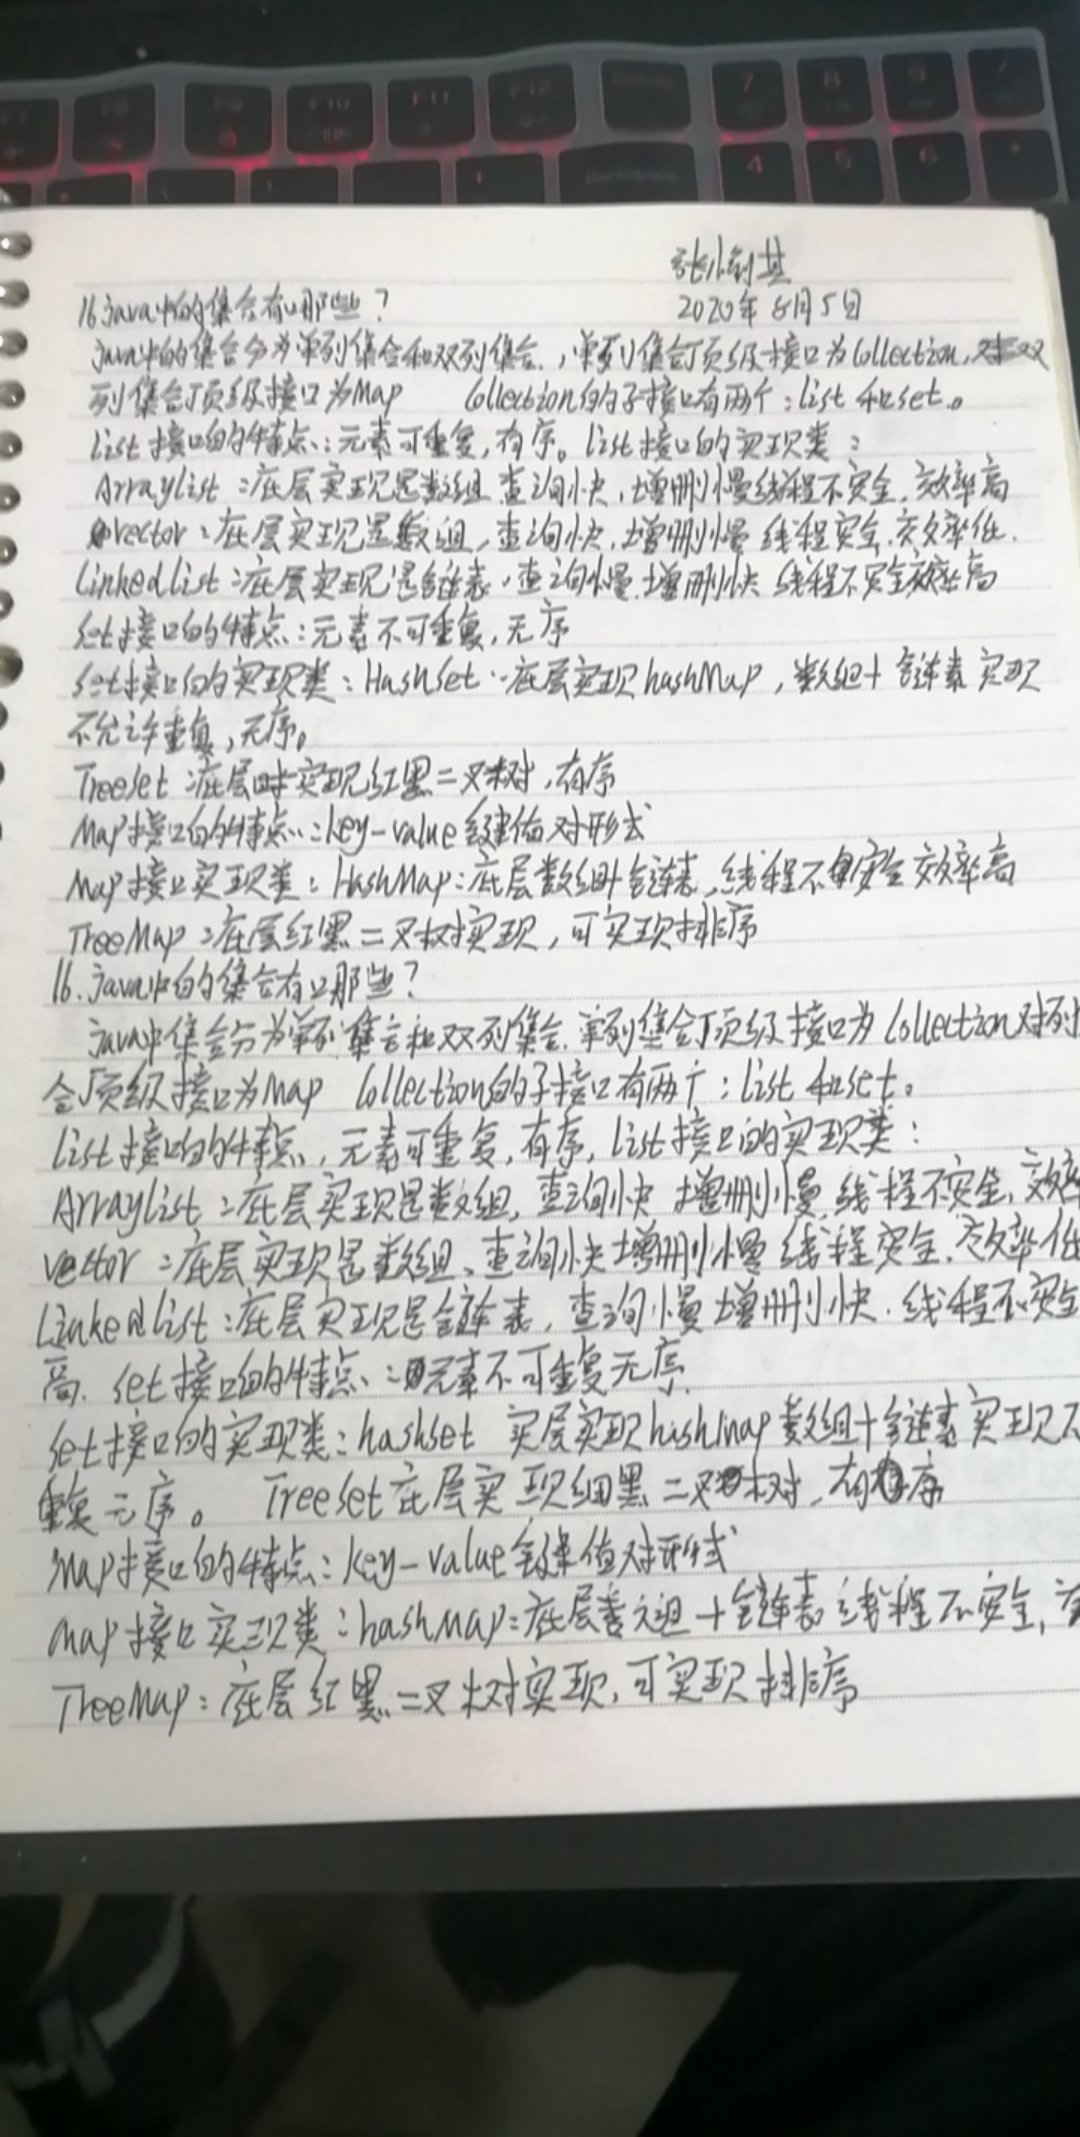 F9 F10 F11 F12 Delete 7 8 9
4 5 6
Backspace
2020年8月5日
16.java中的集合有哪些?
java中的集合分为单列集合和双列集合.,单列集合顶级接口为Collection,双
列集合顶级接口为Map Collection的子接口有两个:list 和set。
list接口的特点:元素可重复,有序。list接口的实现类:
Arraylist:底层实现是数组,查询快,增删慢线程不安全.效率高
vector:底层实现是数组,查询快,增删慢 线程安全.效率低.
Linkedlist:底层实现是链表,查询慢.增删快 线程不安全效率高
set接口的特点:元素不可重复,无序
set接口的实现类:HashSet:底层实现hashMap,数组+链表 实现
不允许重复,无序。
TreeSet:底层实现红黑二叉树,有序
Map接口的特点:key-value键值对形式
Map接口实现类:HashMap:底层数组+链表,线程不安全 效率高
TreeMap:底层红黑二叉树实现,可实现排序
16.java中的集合有哪些?
java中集合分为单列集合和双列集合.单列集合顶级接口为Collection对列
合顶级接口为Map Collection的子接口有两个:list 和set。
list接口的特点,元素可重复,有序,list接口的实现类:
Arraylist:底层实现是数组,查询快 增删慢,线程不安全,效率
vector:底层实现是数组、查询快增删慢 线程安全.效率低
Linkedlist:底层实现是链表,查询慢增删快.线程不安全
高.set接口的特点:元素不可重复无序.
set接口的实现类:hashset 实层实现hishmap数组+链表实现不
重复元序。 TreeSet底层实现细黑二叉树,有序
Map接口的特点:key-value键值对形式
map接口实现类:hashMap:底层 组+链表 线程不安全,
TreeMap:底层红黑二叉树实现,可实现排序